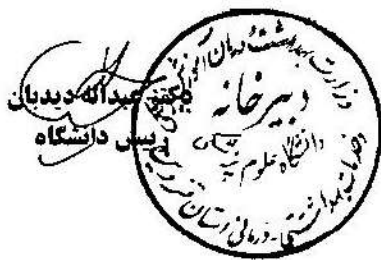 دکتر عبداله دیدبان
رییس دانشگاه
وزارت بهداشت درمان آموزش پزشکی
دبیرخانه
دانشگاه علوم پزشکی
خدمات بهداشتی - درمانی استان قزوین